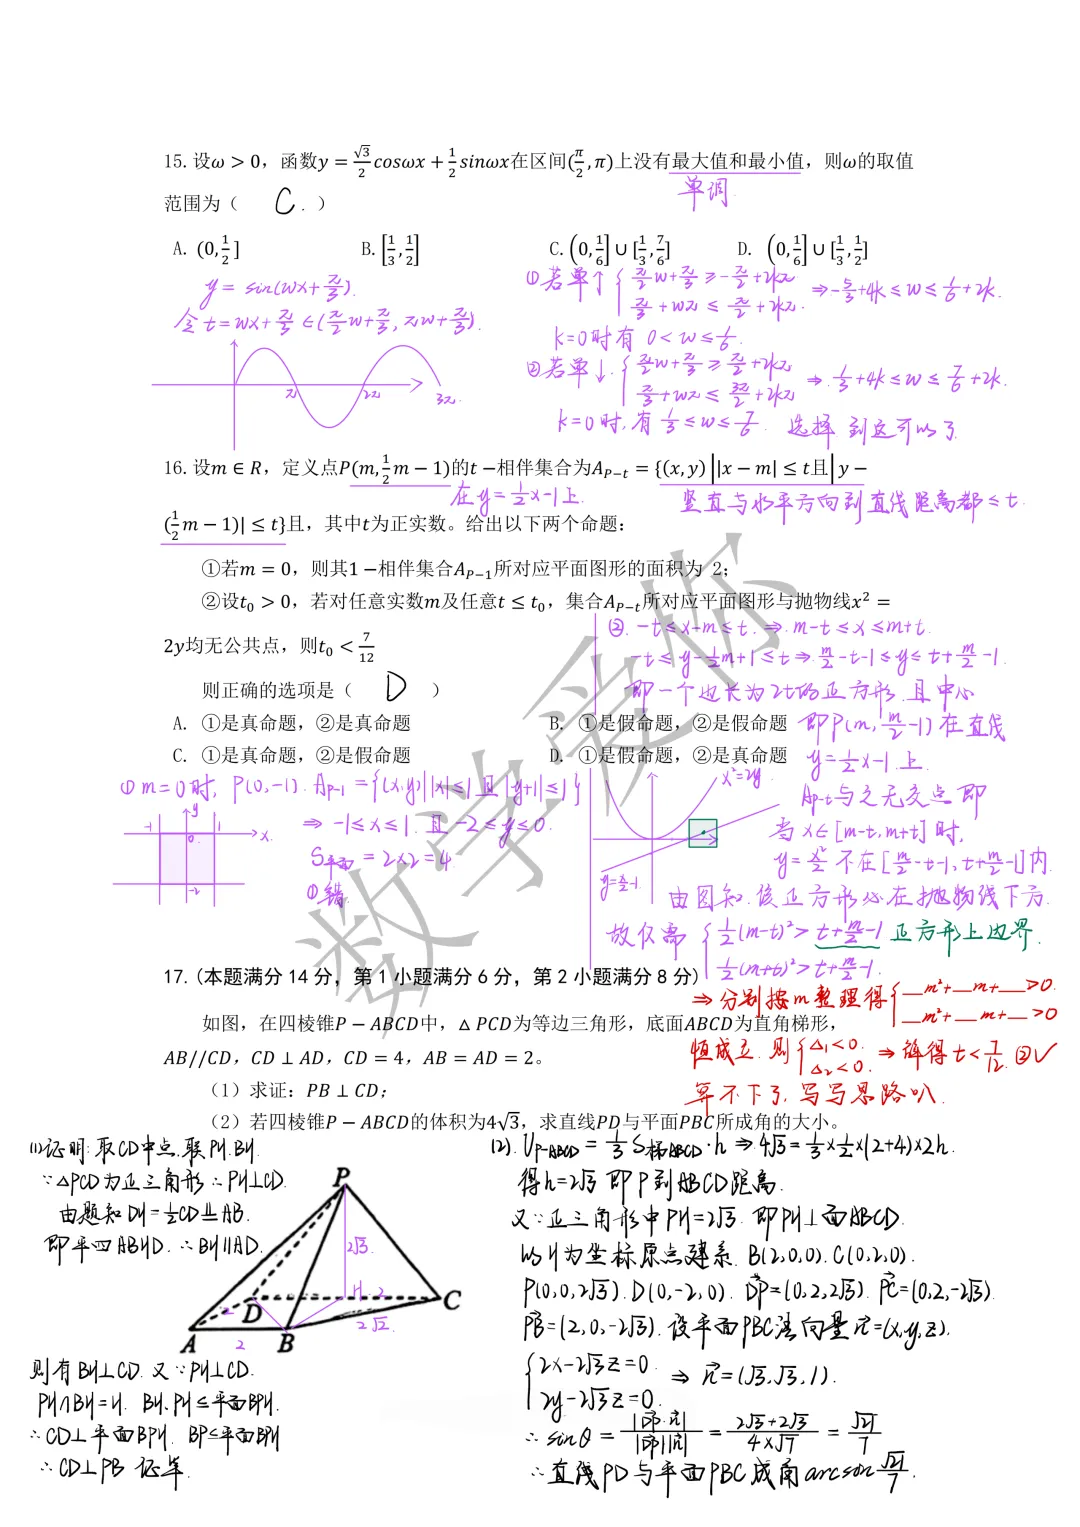 15.设ω > 0，函数y = √3/2 cosωx + 1/2 sinωx在区间(π/2, π)上没有最大值和最小值，则ω的取值
单调
范围为（ C. ）
A. (0, 1/2]  B. [1/3, 1/2]  C. (0, 1/6] ∪ [1/3, 7/6]  D. (0, 1/6] ∪ [1/3, 1/2]
y = sin(ωx+π/3).
令t=ωx+π/3 ∈(π/2ω+π/3, πω+π/3).
π 2π 3π.
①若单↑ { π/2ω+π/3 ≥ -π/2+2kπ
π/3+ωπ ≤ π/2+2kπ. ⇒ -5/3+4k ≤ω≤ 1/6+2k.
k=0时有 0<ω≤1/6.
②若单↓. { π/2ω+π/3 ≥ π/2+2kπ
π/3+ωπ ≤ 3π/2+2kπ ⇒ 1/3+4k ≤ω≤ 7/6+2k.
k=0时,有 1/3≤ω≤7/6. 选择 到这可以了
16.设m ∈ R，定义点P(m, 1/2 m − 1)的t −相伴集合为A_{P−t} = {(x, y) ||x − m| ≤ t且|y −
在y=1/2x-1上.
竖直与水平方向到直线距离都≤t.
(1/2 m − 1)| ≤ t}且，其中t为正实数。给出以下两个命题：
①若m = 0，则其1 −相伴集合A_{P−1}所对应平面图形的面积为 2；
②设t₀ > 0，若对任意实数m及任意t ≤ t₀，集合A_{P−t}所对应平面图形与抛物线x² =
2y均无公共点，则t₀ < 7/12
则正确的选项是（ D ）
A. ①是真命题，②是真命题  B. ①是假命题，②是假命题
C. ①是真命题，②是假命题  D. ①是假命题，②是真命题
②. -t≤x-m≤t. ⇒ m-t≤x≤m+t.
-t≤y-1/2m+1≤t ⇒ m/2-t-1≤y≤t+m/2-1.
即一个边长为2t的正方形.且中心
即P(m, m/2-1)在直线
y=1/2x-1上.
A_{P-t}与之无交点即
当x∈[m-t,m+t]时,
y=x²/2不在[m/2-t-1,t+m/2-1]内.
由图知.该正方形必在抛物线下方.
故仅需 { 1/2(m-t)²>t+m/2-1 正方形上边界.
1/2(m+t)²>t+m/2-1.
⇒分别按m整理得 { __m²+__m+__>0.
__m²+__m+__>0
恒成立.则 { Δ₁<0.
Δ₂<0. ⇒解得t<7/12 ②✓
算不下了,写写思路叭.
x²=2y
y=x/2-1
①m=0时, P(0,-1). A_{P-1}={(x,y)||x|≤1且|y+1|≤1}
⇒ -1≤x≤1.且-2≤y≤0.
S平面=2×2=4
①错.
y -1 0 1 x. -2
数学爱你
17.(本题满分 14 分，第 1 小题满分 6 分，第 2 小题满分 8 分)
如图，在四棱锥P − ABCD中，△ PCD为等边三角形，底面ABCD为直角梯形，
AB//CD，CD ⊥ AD，CD = 4，AB = AD = 2。
（1）求证：PB ⊥ CD；
（2）若四棱锥P − ABCD的体积为4√3，求直线PD与平面PBC所成角的大小。
(1)证明:取CD中点.联PH.BH.
∵△PCD为正三角形∴PH⊥CD.
由题知DH=1/2CD⫫AB.
即平四ABHD.∴BH∥AD.
P 2√3. D H 2 C 2 2√2. A 2 B
则有BH⊥CD. 又∵PH⊥CD.
PH∩BH=H. BH.PH⊆平面BPH.
∴CD⊥平面BPH. BP⊆平面BPH
∴CD⊥PB 证毕.
(2). V_{P-ABCD} = 1/3 S梯ABCD·h ⇒ 4√3=1/3×1/2×(2+4)×2h.
得h=2√3 即P到ABCD距离.
又∵正三角形中PH=2√3. 即PH⊥面ABCD.
以H为坐标原点建系. B(2,0,0).C(0,2,0).
P(0,0,2√3).D(0,-2,0). DP=(0,2,2√3). PC=(0,2,-2√3).
PB=(2,0,-2√3). 设平面PBC法向量n=(x,y,z).
{ 2x-2√3z=0.
2y-2√3z=0. ⇒ n=(√3,√3,1).
∴ sinθ = |DP·n|/|DP||n| = 2√3+2√3/4×√7 = √21/7
∴直线PD与平面PBC成角arcsin √21/7.